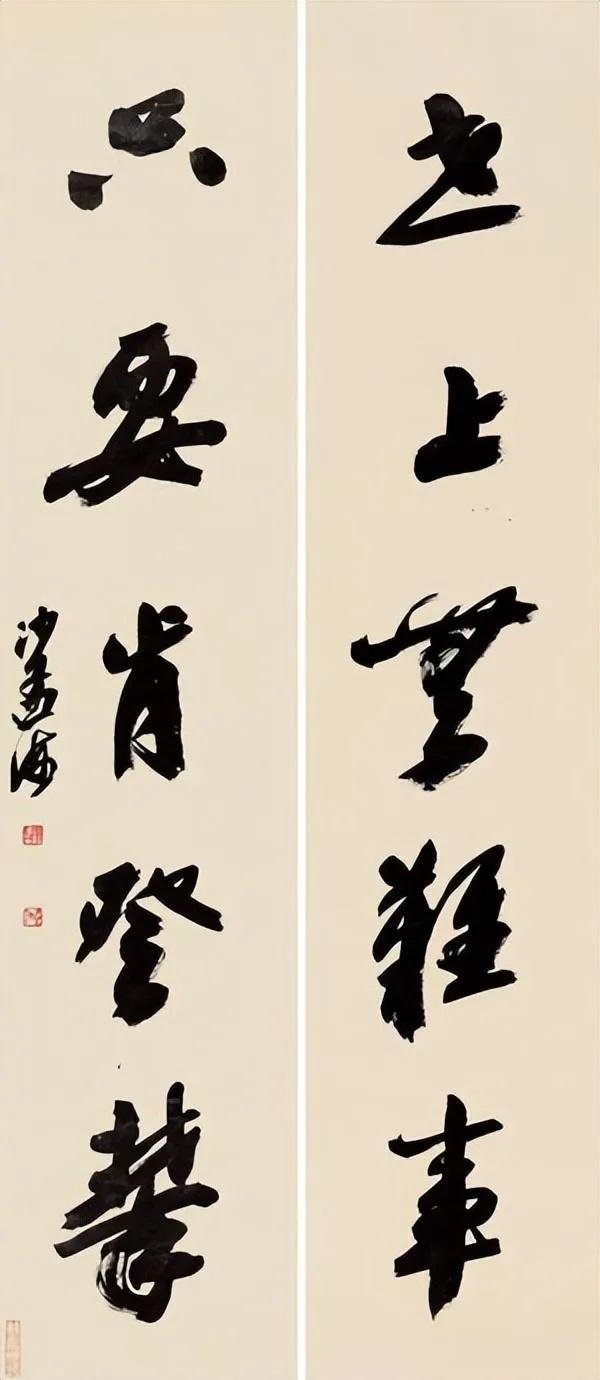 世上無難事
只要肯登攀
沙孟海